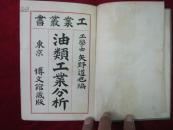 工業叢書
工學士 矢野道也編
油類工業分析
東京 博文館蔵版